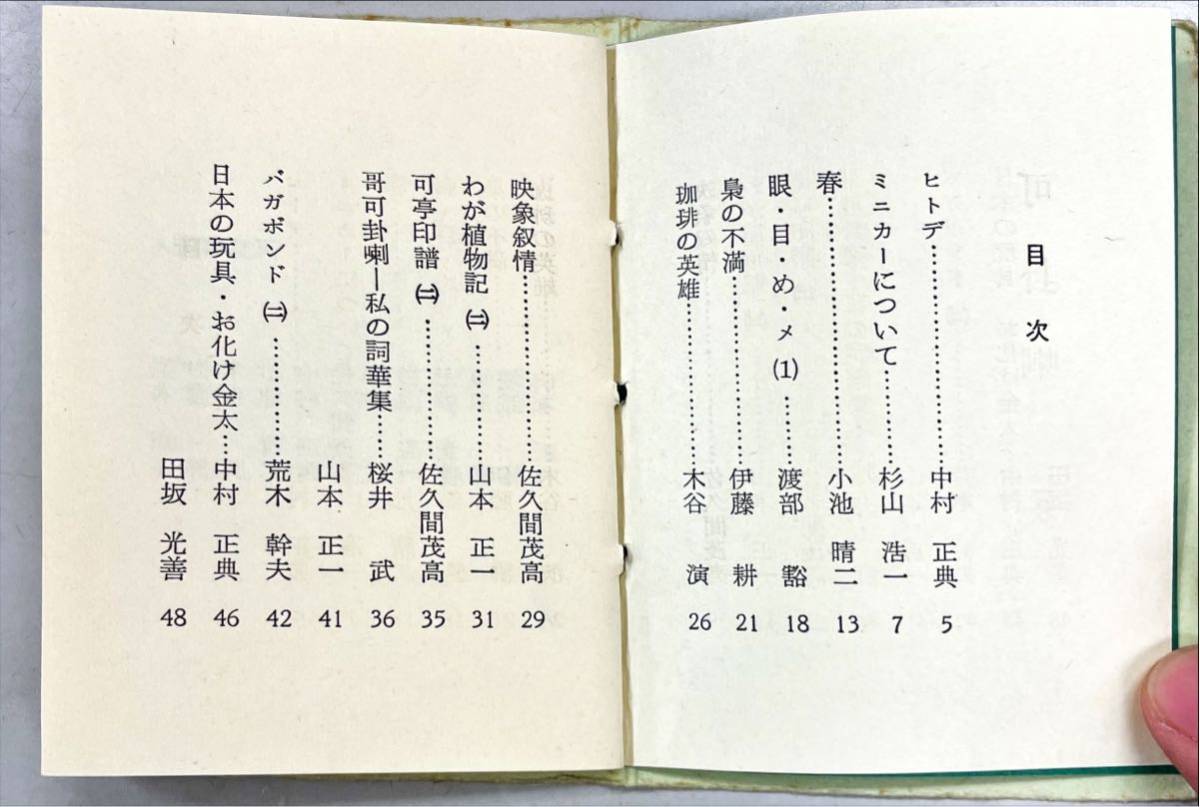 目次
ヒトデ………………中村 正典 5
ミニカーについて………杉山 浩一 7
春………………小池 晴二 13
眼・目・め・メ (1)………渡部 豁 18
梟の不満………………伊藤 耕 21
珈琲の英雄………………木谷 演 26
映象叙情………………佐久間茂高 29
わが植物記 ㈡………山本 正一 31
可亭印譜 ㈡………佐久間茂高 35
哥可卦喇―私の詞華集……桜井 武 36
山本 正一 41
バガボンド ㈡………荒木 幹夫 42
日本の玩具・お化け金太……中村 正典 46
田坂 光善 48